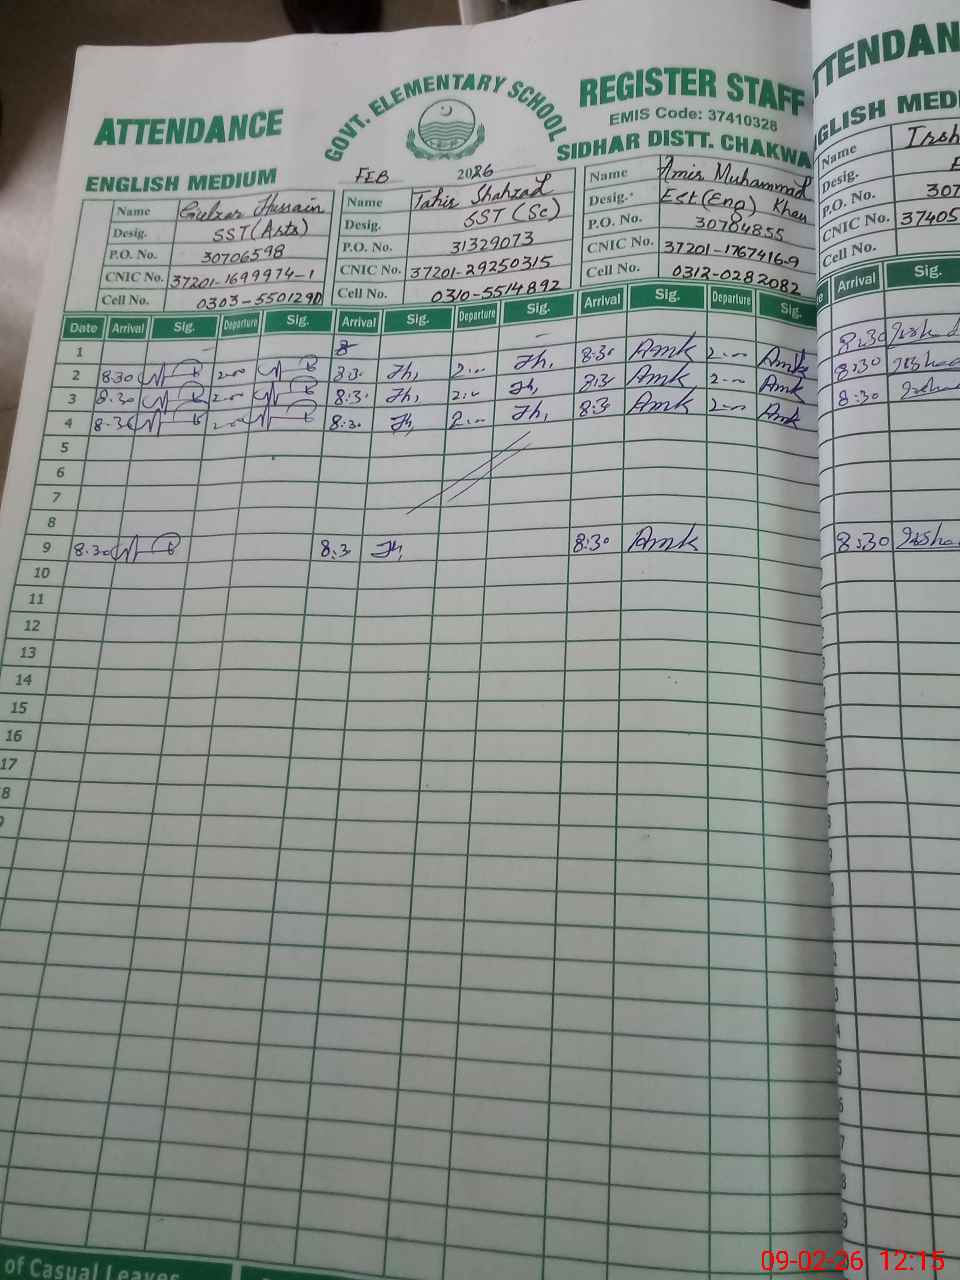 ATTENDANCE
GOVT. ELEMENTARY SCHOOL
REGISTER STAFF
EMIS Code: 37410328
SIDHAR DISTT. CHAKWA
ENGLISH MEDIUM
FEB 2026
Name Gulzar Hussain
Desig. SST(Arts)
P.O. No. 30706598
CNIC No. 37201-1699974-1
Cell No. 0303-5501290
Name Tahir Shahzad
Desig. SST (Sc)
P.O. No. 31329073
CNIC No. 37201-29250315
Cell No. 0310-5514892
Name Amir Muhammad
Desig. Est(Eng) Khan
P.O. No. 30704855
CNIC No. 37201-1767416-9
Cell No. 0312-0282082
Date Arrival Sig. Departure Sig. Arrival Sig. Departure Sig. Arrival Sig. Departure Sig.
1 8
2 8:30 2:00 8:30 Th, 2:00 Th, 8:30 Amk 2:00 Amk
3 8:30 2:00 8:30 Th, 2:00 Th, 8:30 Amk 2:00 Amk
4 8:30 2:00 8:30 Th, 2:00 Th, 8:30 Amk 2:00 Amk
5
6
7
8
9 8:30 8:3 Th, 8:30 Amk
10
11
12
13
14
15
16
17
8
of Casual Leaves
TTENDAN
GLISH MEDI
Name Irsh
Desig.
P.O. No. 307
CNIC No. 37405
Cell No.
Arrival Sig.
8:30 Irshad
8:30 Irshad
8:30 Irshad
8:30 Irsha
09-02-26 12:15